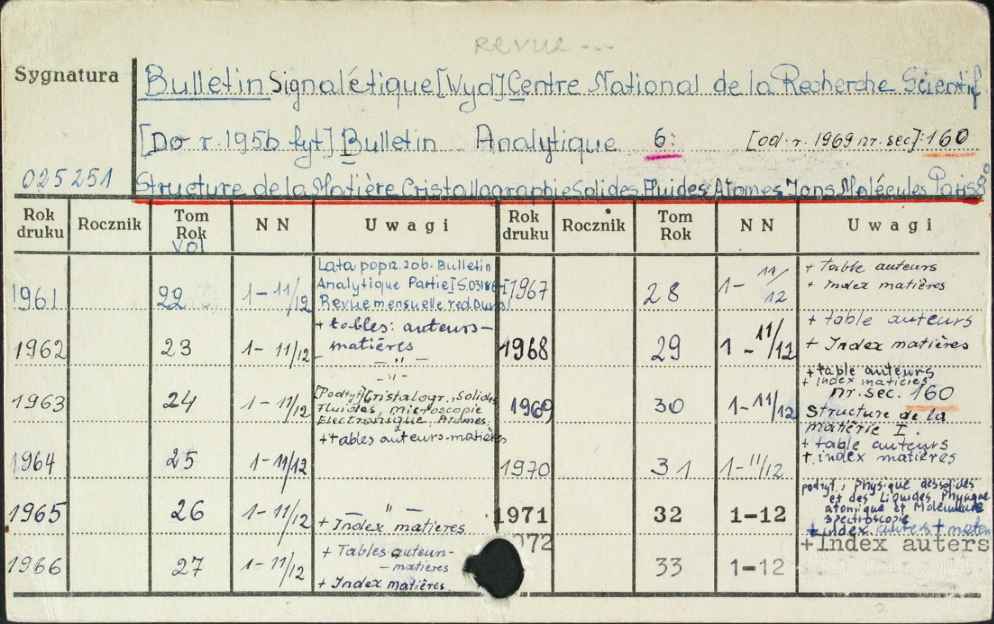 REVUE ---
Sygnatura
Bulletin Signalétique [Wyd] Centre National de la Recherche Scientif
[Do r. 1956 tyt] Bulletin Analytique 6: [od. r. 1969 nr. sec]: 160
025251
Structure de la Matière Cristallographie Solides Fluides Atomes Ions Molécules Paris
Rok druku Rocznik Tom Rok vol NN Uwagi Rok druku Rocznik Tom Rok NN Uwagi
1961 22 1-11/12 Lata popr. zob. Bulletin
Analytique Partie
Revue mensuelle
1962 23 1-11/12 + tables: auteurs-
matières
— " —
1963 24 1-11/12 — " —
[Podtyt] Cristalogr., Solides
Fluides, microscopie
Electronique, Atomes
+ tables auteurs-matières
1964 25 1-11/12
1965 26 1-11/12 — " —
+ Index matières
1966 27 1-11/12 + Tables auteurs-
-matieres
+ Index matières
1967 28 1-11/12 + Table auteurs
+ Index matières
1968 29 1-11/12 + table auteurs
+ Index matières
1969 30 1-11/12 + table auteurs
+ index matières
nr. sec. 160
Structure de la
matière I.
1970 31 1-11/12 + table auteurs
+ index matières
1971 32 1-12 podtyt; Physique des solides
et des Liquides, Physique
atomique et Moleculaire
spectroscopie
+ index auters +
1972 33 1-12 +Index auters